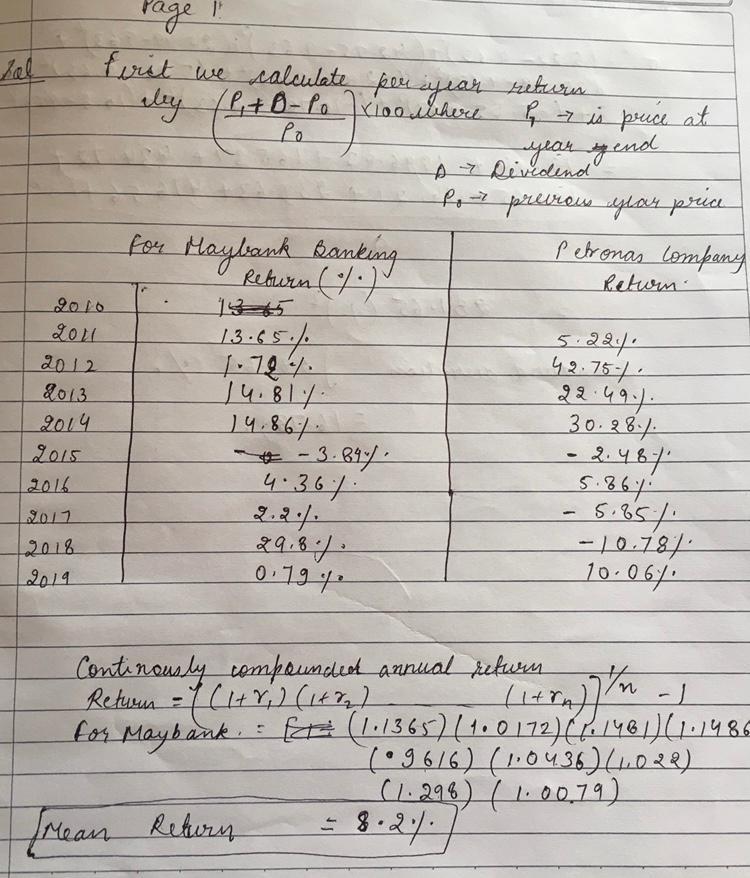 Page 1
Sol First we calculate per year return
by (P₁ + D - P₀ / P₀) × 100 where P₁ → is price at
year end
D → Dividend
P₀ → previous year price
For Maybank Banking Petronas Company
Return (%) Return.
2010
2011 13.65% 5.22%
2012 1.72% 42.75%
2013 14.81% 22.49%
2014 14.86% 30.28%
2015 - 3.84% - 2.48%
2016 4.36% 5.86%
2017 2.2% - 5.85%
2018 29.8% -10.78%
2019 0.79% 10.06%
Continously compounded annual return
Return = [(1+r₁) (1+r₂) (1+rn)]^1/n - 1
For Maybank. = (1.1365) (1.0172) (1.1481) (1.1486
(.9616) (1.0436) (1.022)
(1.298) (1.0079)
Mean Return = 8.2%